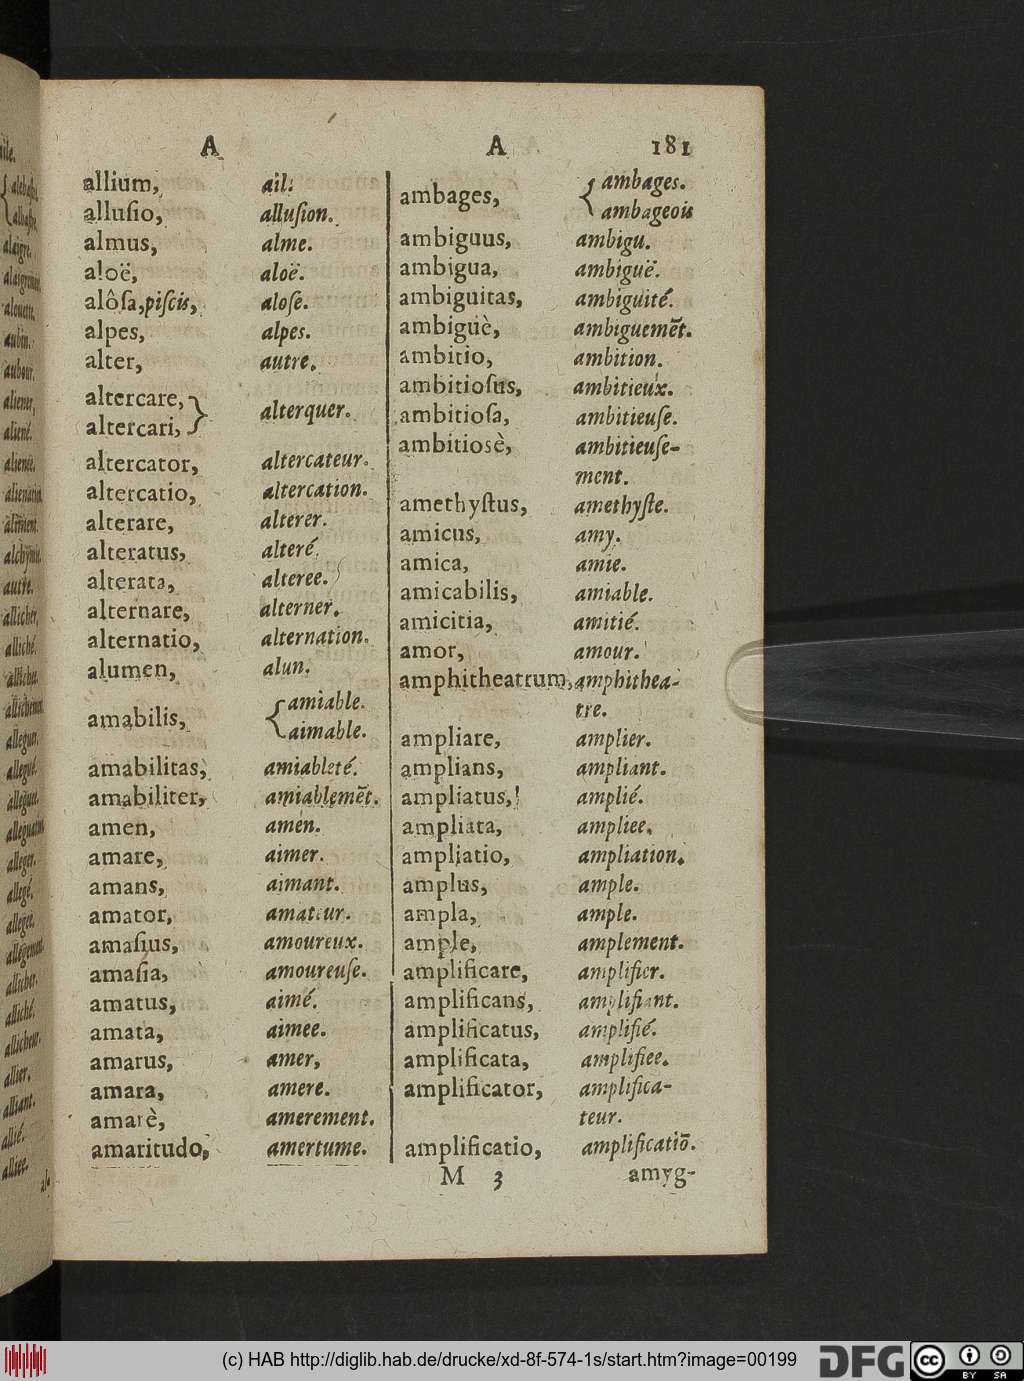 A A 181
allium, ail.
alluſio, alluſion.
almus, alme.
aloë, aloë.
alôſa, piſcis, aloſe.
alpes, alpes.
alter, autre.
altercare, } alterquer.
altercari,
altercator, altercateur.
altercatio, altercation.
alterare, alterer.
alteratus, alteré.
alterata, alteree.
alternare, alterner.
alternatio, alternation.
alumen, alun.
amabilis, { amiable.
aimable.
amabilitas, amiableté.
amabiliter, amiablemẽt.
amen, amen.
amare, aimer.
amans, aimant.
amator, amateur.
amaſius, amoureux.
amaſia, amoureuſe.
amatus, aimé.
amata, aimee.
amarus, amer,
amara, amere.
amarè, amerement.
amaritudo, amertume.
ambages, { ambages.
ambageois
ambiguus, ambigu.
ambigua, ambiguë.
ambiguitas, ambiguité.
ambiguè, ambiguemẽt.
ambitio, ambition.
ambitioſus, ambitieux.
ambitioſa, ambitieuſe.
ambitiosè, ambitieuſe-
ment.
amethyſtus, amethyſte.
amicus, amy.
amica, amie.
amicabilis, amiable.
amicitia, amitié.
amor, amour.
amphitheatrum, amphithea-
tre.
ampliare, amplier.
amplians, ampliant.
ampliatus, amplié.
ampliata, ampliee.
ampliatio, ampliation.
amplus, ample.
ampla, ample.
ample, amplement.
amplificare, amplifier.
amplificans, amplifiant.
amplificatus, amplifié.
amplificata, amplifiee.
amplificator, amplifica-
teur.
amplificatio, amplificatiõ.
M 3 amyg-
alaigre,
alouette,
aubin.
aubour,
aliener,
aliené.
alienee.
aliment.
autre.
allicher,
alliché.
allichee.
alleguer.
allegué.
alleguee.
alleger.
allegé.
allegee.
allicher.
alliché.
allier.
alliant.
allié.
alliee.
(c) HAB http://diglib.hab.de/drucke/xd-8f-574-1s/start.htm?image=00199
DFG
cc BY SA